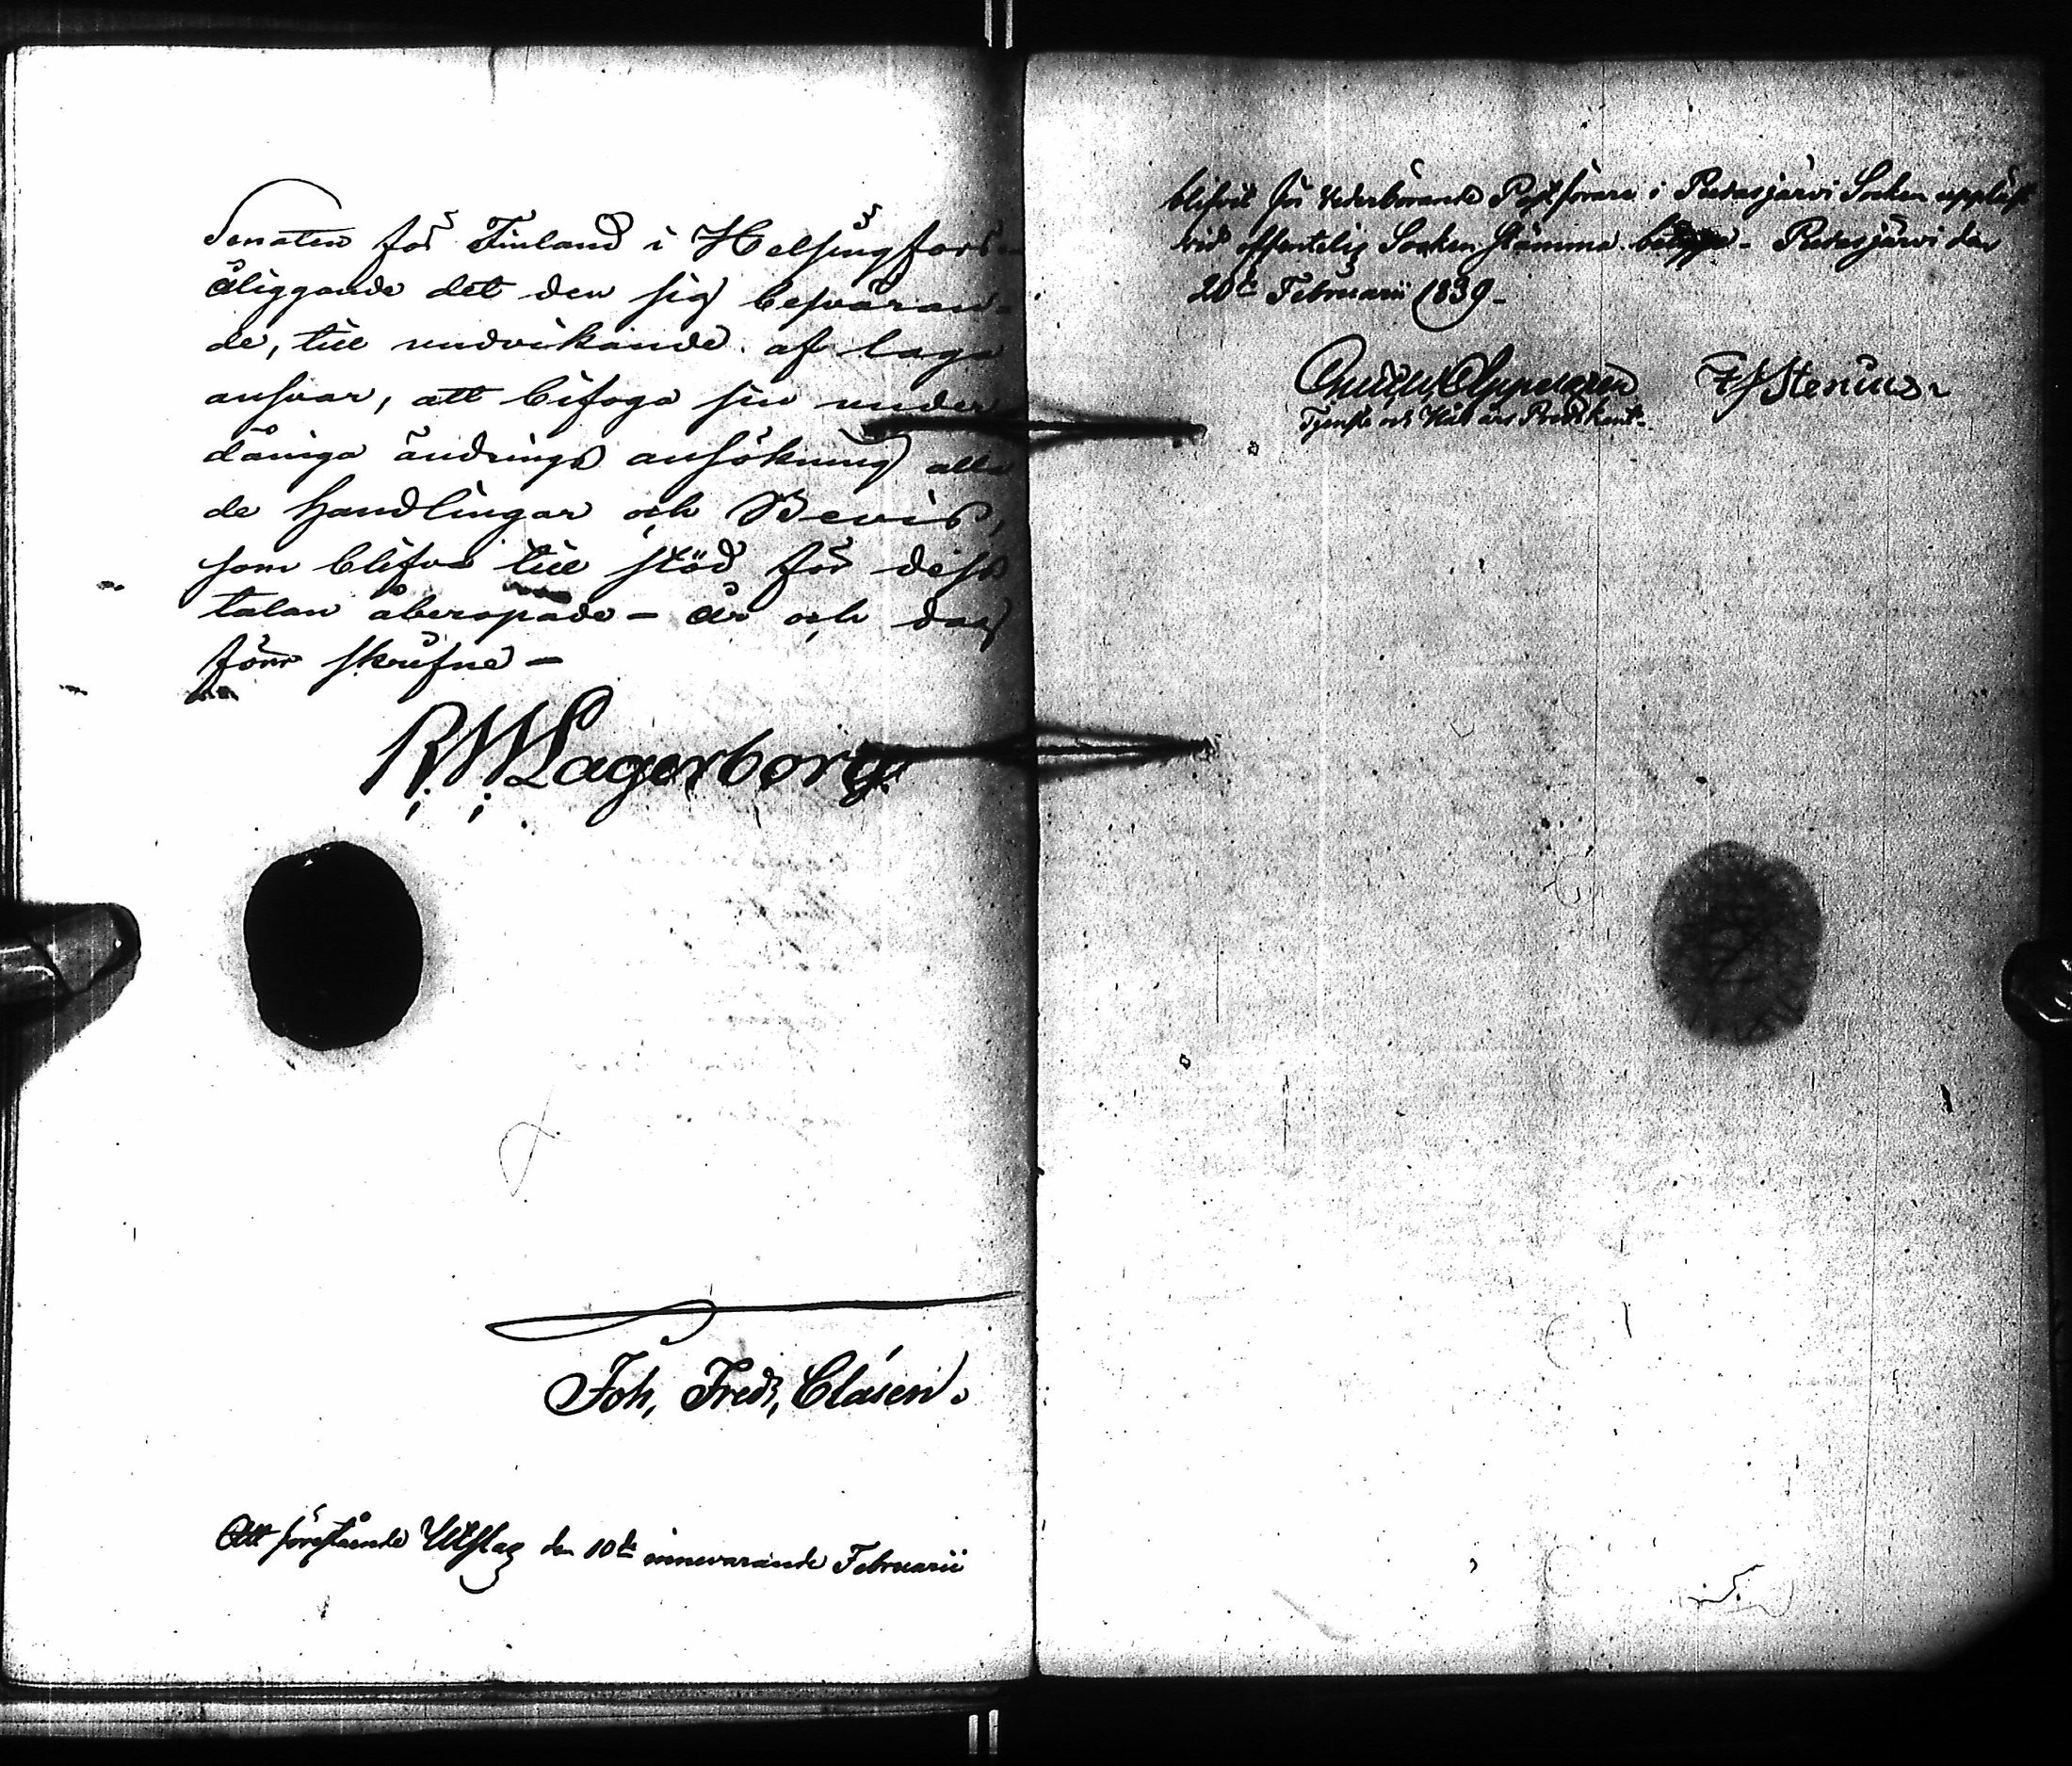 Senaten för Finland i Helsingfors
åliggande det den sig besväran-
de, till undvikande af laga
ansvar, att bifoga sin under
dåniga ändrings ansökning alla
de Handlingar och Bevis,
som blifva till stöd för dess
talan åberopade – år och dag
förr skrifne –
R. W. Lagerborg.
Joh, Fredr, Clásen.
Att förestående Utslag den 10de innevarande Februarii
blifvit för vederbörande Postförare i Pudasjärvi Socken uppläst
vid offentelig Socken Stämma. Pudasjärvi den
20de Februarii 1839 –
Gustaf Appelgren
Stenius
Tjenste och Predikant.